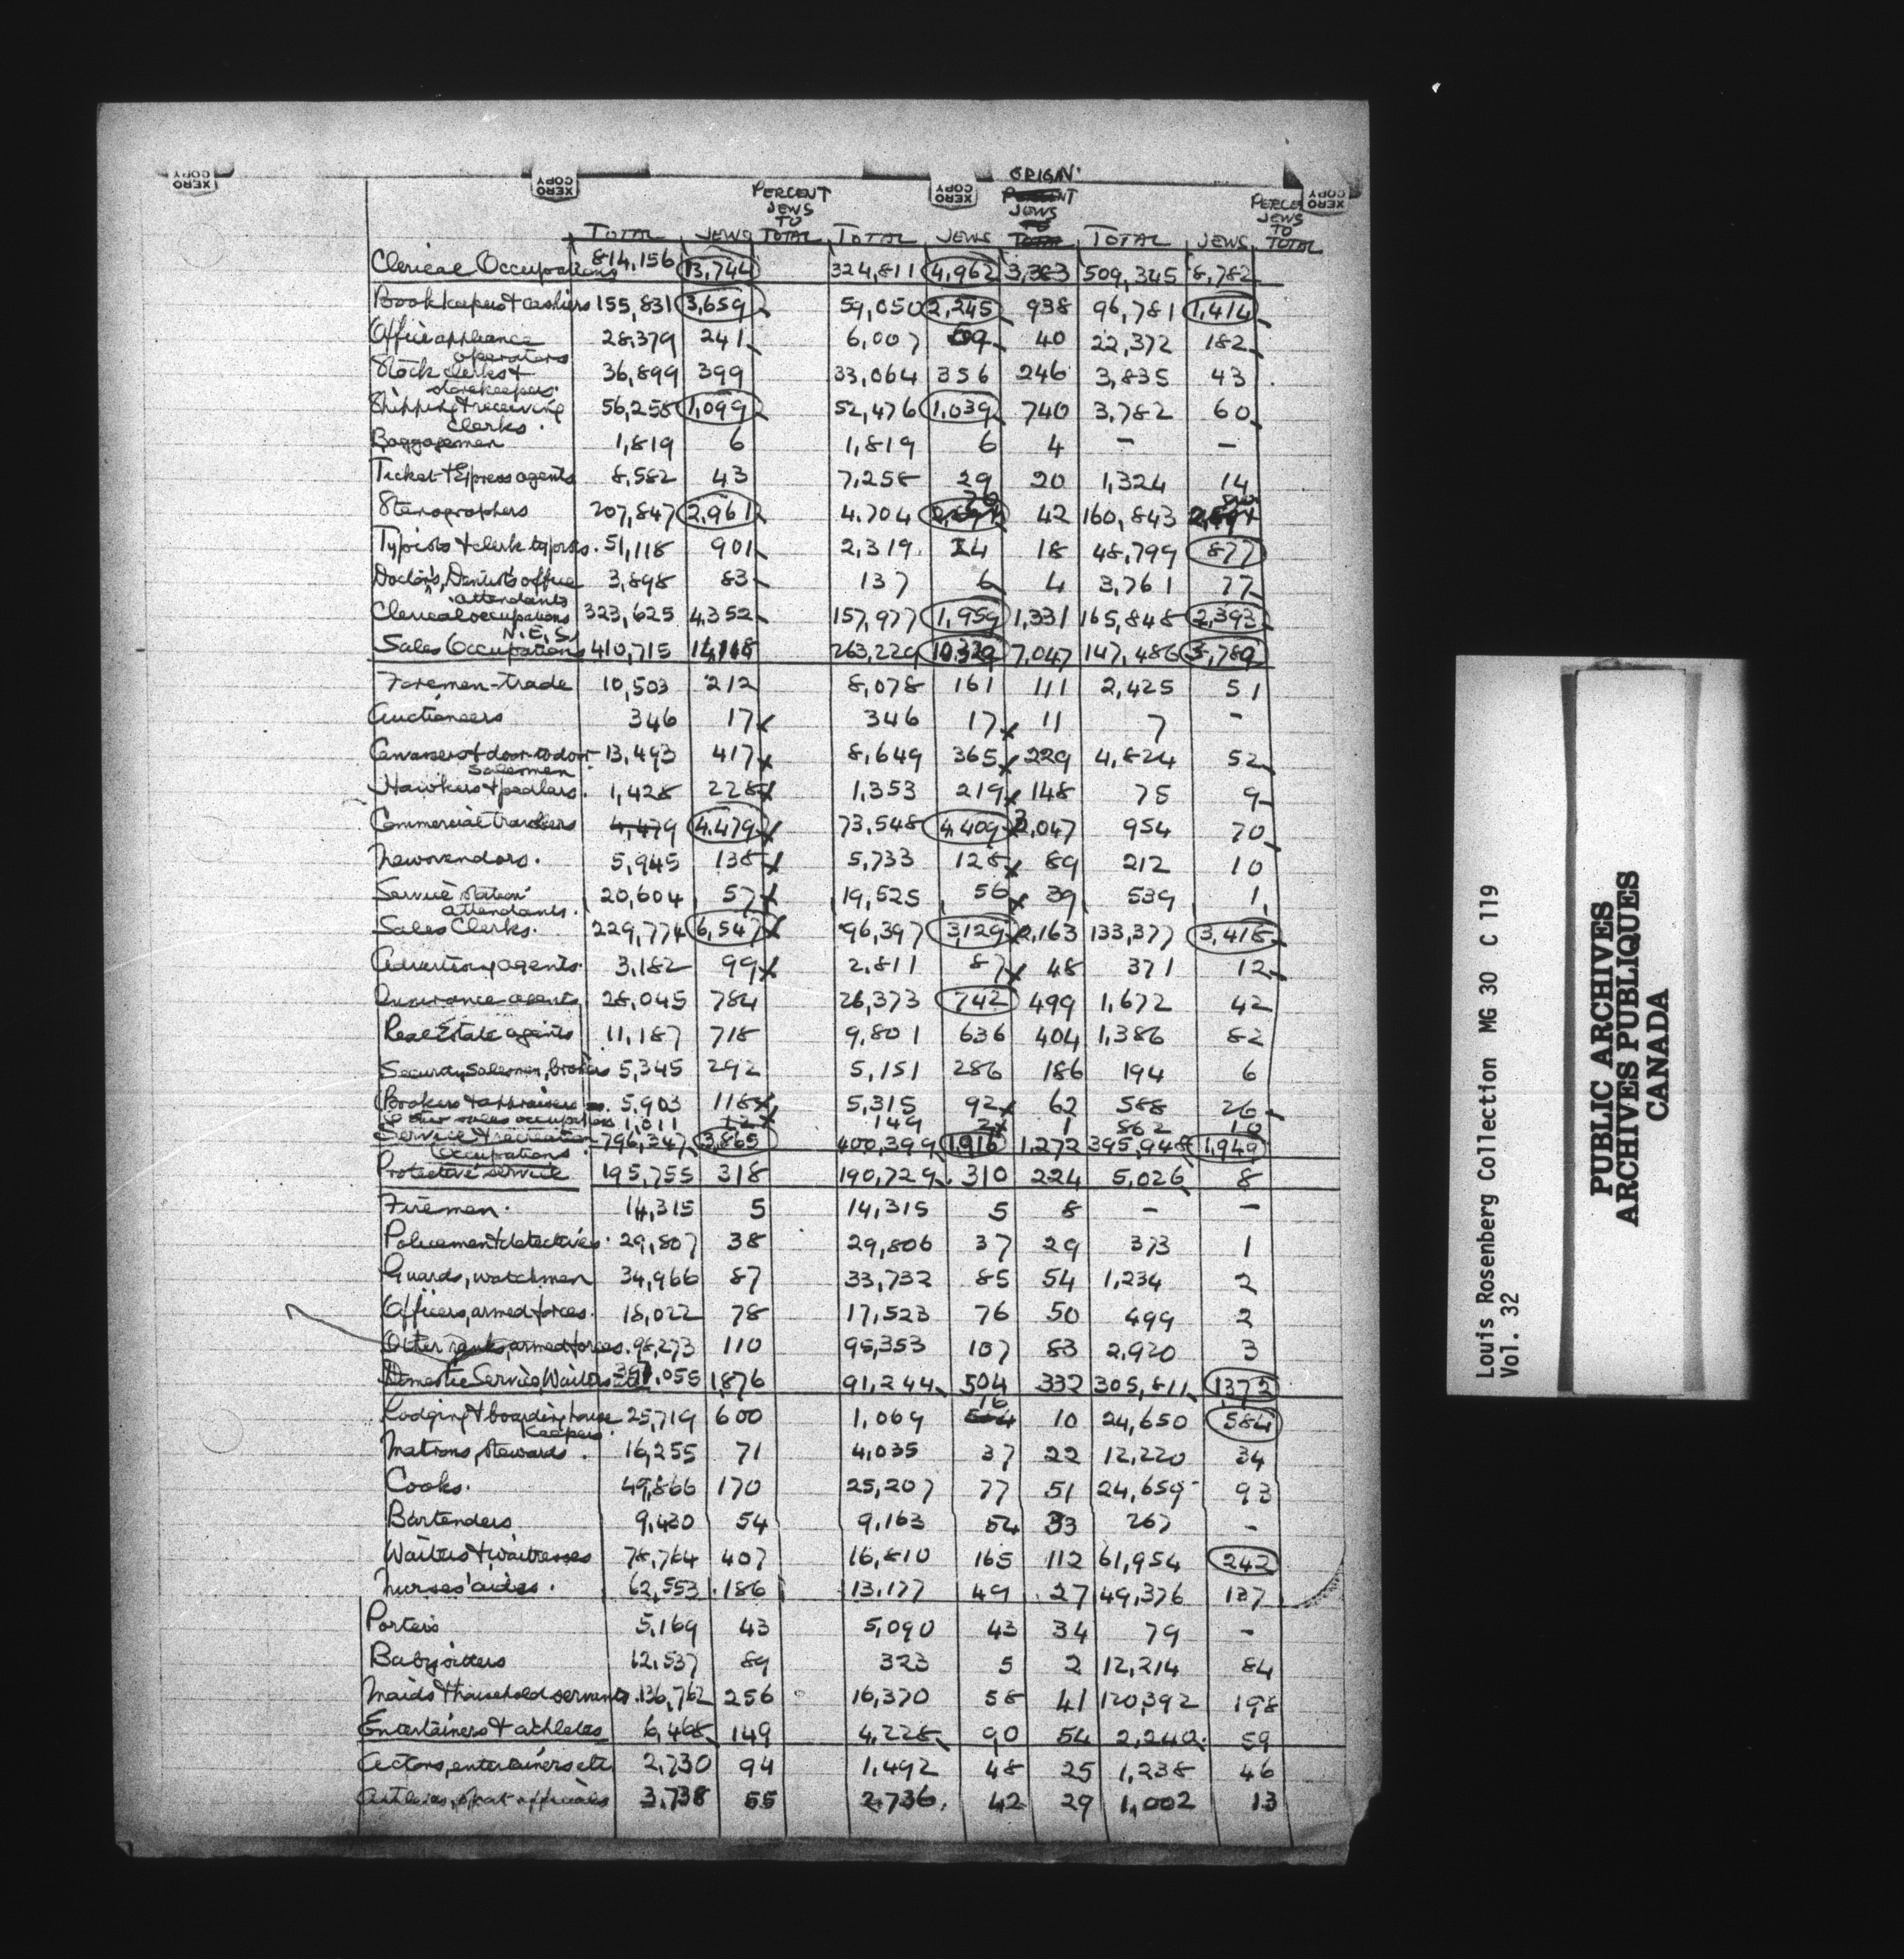 XERO COPY XERO COPY XERO COPY XERO COPY
ORIGIN
PERCENT JEWS TO TOTAL
TOTAL JEWS TOTAL TOTAL JEWS TOTAL JEWS TOTAL
Clerical Occupations 814,156 13,744 324,811 4,962 3,383 509,345 8,782
Bookkeepers & cashiers 155,831 3,659 59,050 2,245 938 96,781 1,414
Office appliance operators 28,379 241 6,007 40 22,372 182
Stock clerks & storekeepers. 36,899 399 33,064 356 246 3,835 43
Shipping & receiving clerks. 56,258 1,099 52,476 1,039 740 3,782 60
Baggagemen 1,819 6 1,819 6 4 – –
Ticket & Express agents 8,582 43 7,258 29 20 1,324 14
Stenographers 207,847 2,961 4,704 42 160,843
Typists & clerk typists. 51,118 901 2,319 24 18 48,799 877
Doctor's, Dentist's office attendants 3,898 83 137 6 4 3,761 77
Clerical occupations N.E.S. 323,625 4,352 157,977 1,959 1,331 165,848 2,393
Sales Occupations 410,715 263,229 10,329 7,047 147,486 3,789
Foremen-trade 10,503 212 8,078 161 111 2,425 51
Auctioneers 346 17 346 17 11 7 -
Canvassers & door-to-door salesmen 13,493 417 8,649 365 229 4,824 52
Hawkers & pedlars. 1,428 228 1,353 219 148 75 9
Commercial travellers 4,479 4,479 73,548 4,409 3,047 954 70
Newsvendors. 5,945 138 5,733 128 89 212 10
Service station attendants. 20,604 57 19,525 56 39 539 1
Sales Clerks. 229,774 6,547 96,397 3,129 2,163 133,377 3,418
Advertising agents. 3,182 99 2,811 87 48 371 12
Insurance agents 28,045 784 26,373 742 499 1,672 42
Real Estate agents 11,187 718 9,801 636 404 1,386 82
Security Salesmen, brokers 5,345 292 5,151 286 186 194 6
Brokers & appraisers 5,903 118 5,315 92 62 588 26
Other sales occupations 1,011 12 149 2 1 862 10
Service & recreation Occupations. 796,347 3,865 400,399 1,916 1,272 395,948 1,949
Protective service 195,755 318 190,729 310 224 5,026 8
Firemen. 14,315 5 14,315 5 8 – –
Policemen & detectives. 29,807 38 29,806 37 29 373 1
Guards, watchmen 34,966 87 33,732 85 54 1,234 2
Officers, armed forces. 18,022 78 17,523 76 50 499 2
Other ranks, armed forces. 98,273 110 95,353 107 83 2,920 3
Domestic Service, Waiters etc 397,055 1876 91,244 504 332 305,811 1372
Lodging & boarding house keepers. 25,719 600 1,069 16 10 24,650 584
Matrons, Stewards. 16,255 71 4,035 37 22 12,220 34
Cooks. 49,866 170 25,207 77 51 24,659 93
Bartenders 9,430 54 9,163 54 33 267 -
Waiters & waitresses 78,764 407 16,810 165 112 61,954 242
Nurses' aides. 62,553 186 13,177 49 27 49,376 137
Porters 5,169 43 5,090 43 34 79 -
Babysitters 12,537 89 323 5 2 12,214 84
Maids & household servants. 136,762 256 16,370 58 41 120,392 198
Entertainers & athletes 6,468 149 4,228 90 54 2,240 59
Actors, entertainers etc. 2,730 94 1,492 48 25 1,238 46
Athletes, sport officials 3,738 55 2,736 42 29 1,002 13
Louis Rosenberg Collection MG 30 C 119
Vol. 32
PUBLIC ARCHIVES
ARCHIVES PUBLIQUES
CANADA